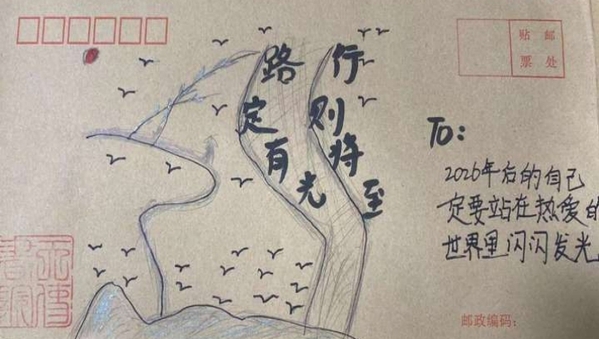 贴邮
票处
行则将至
路定有光
To:
2026年后的自己
定要站在热爱的
世界里闪闪发光
邮政编码: